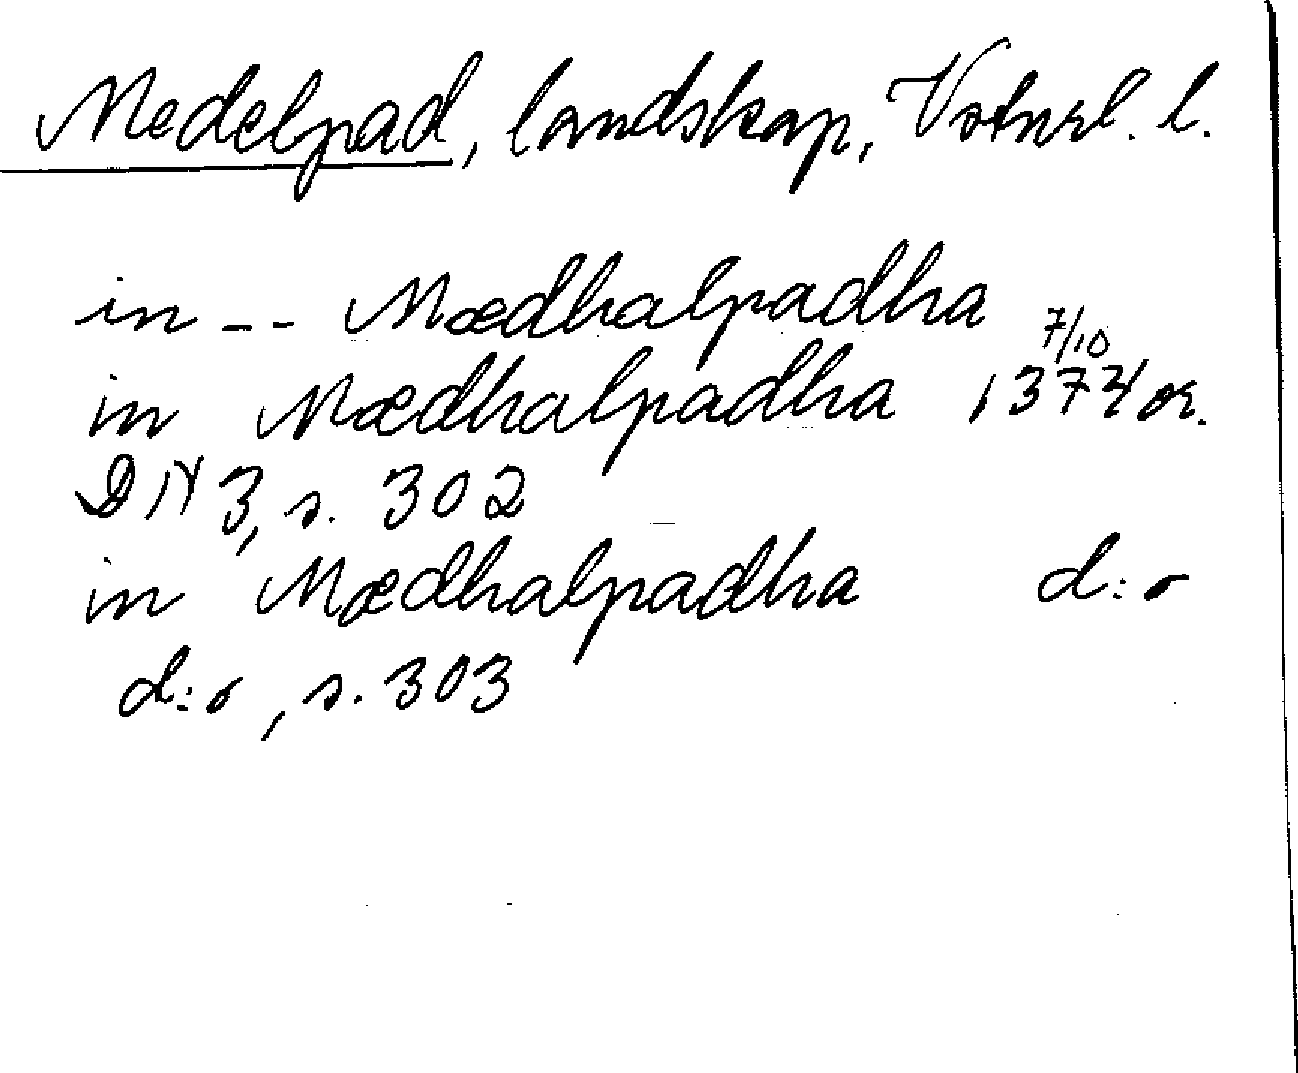 Medelpad, landskap, Vstnrl. l.
in -- Mædhalpadha
in Mædhalpadha 7/10 1374 or.
DN 3, s. 302
in Mædhalpadha d:o
d:o, s. 303